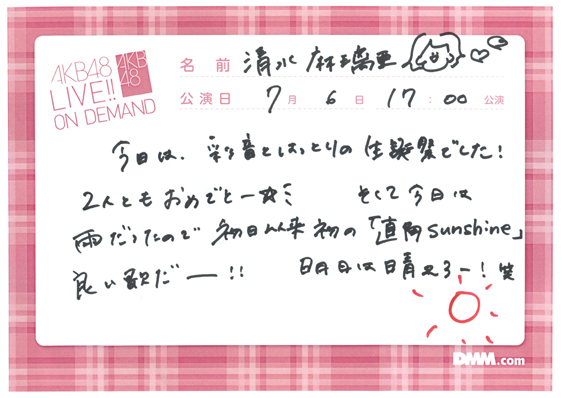 AKB48
LIVE!!
ON DEMAND
AKB
48
名 前 清水 麻璃亜
公演日 7月 6日 17:00 公演
今日は、彩音とはっとりの生誕祭でした!
2人ともおめでとー☆ そして今日は
雨だったので 初日以来初の「直角sunshine」
良い歌だー!! 明日は晴えろー!笑
DMM.com